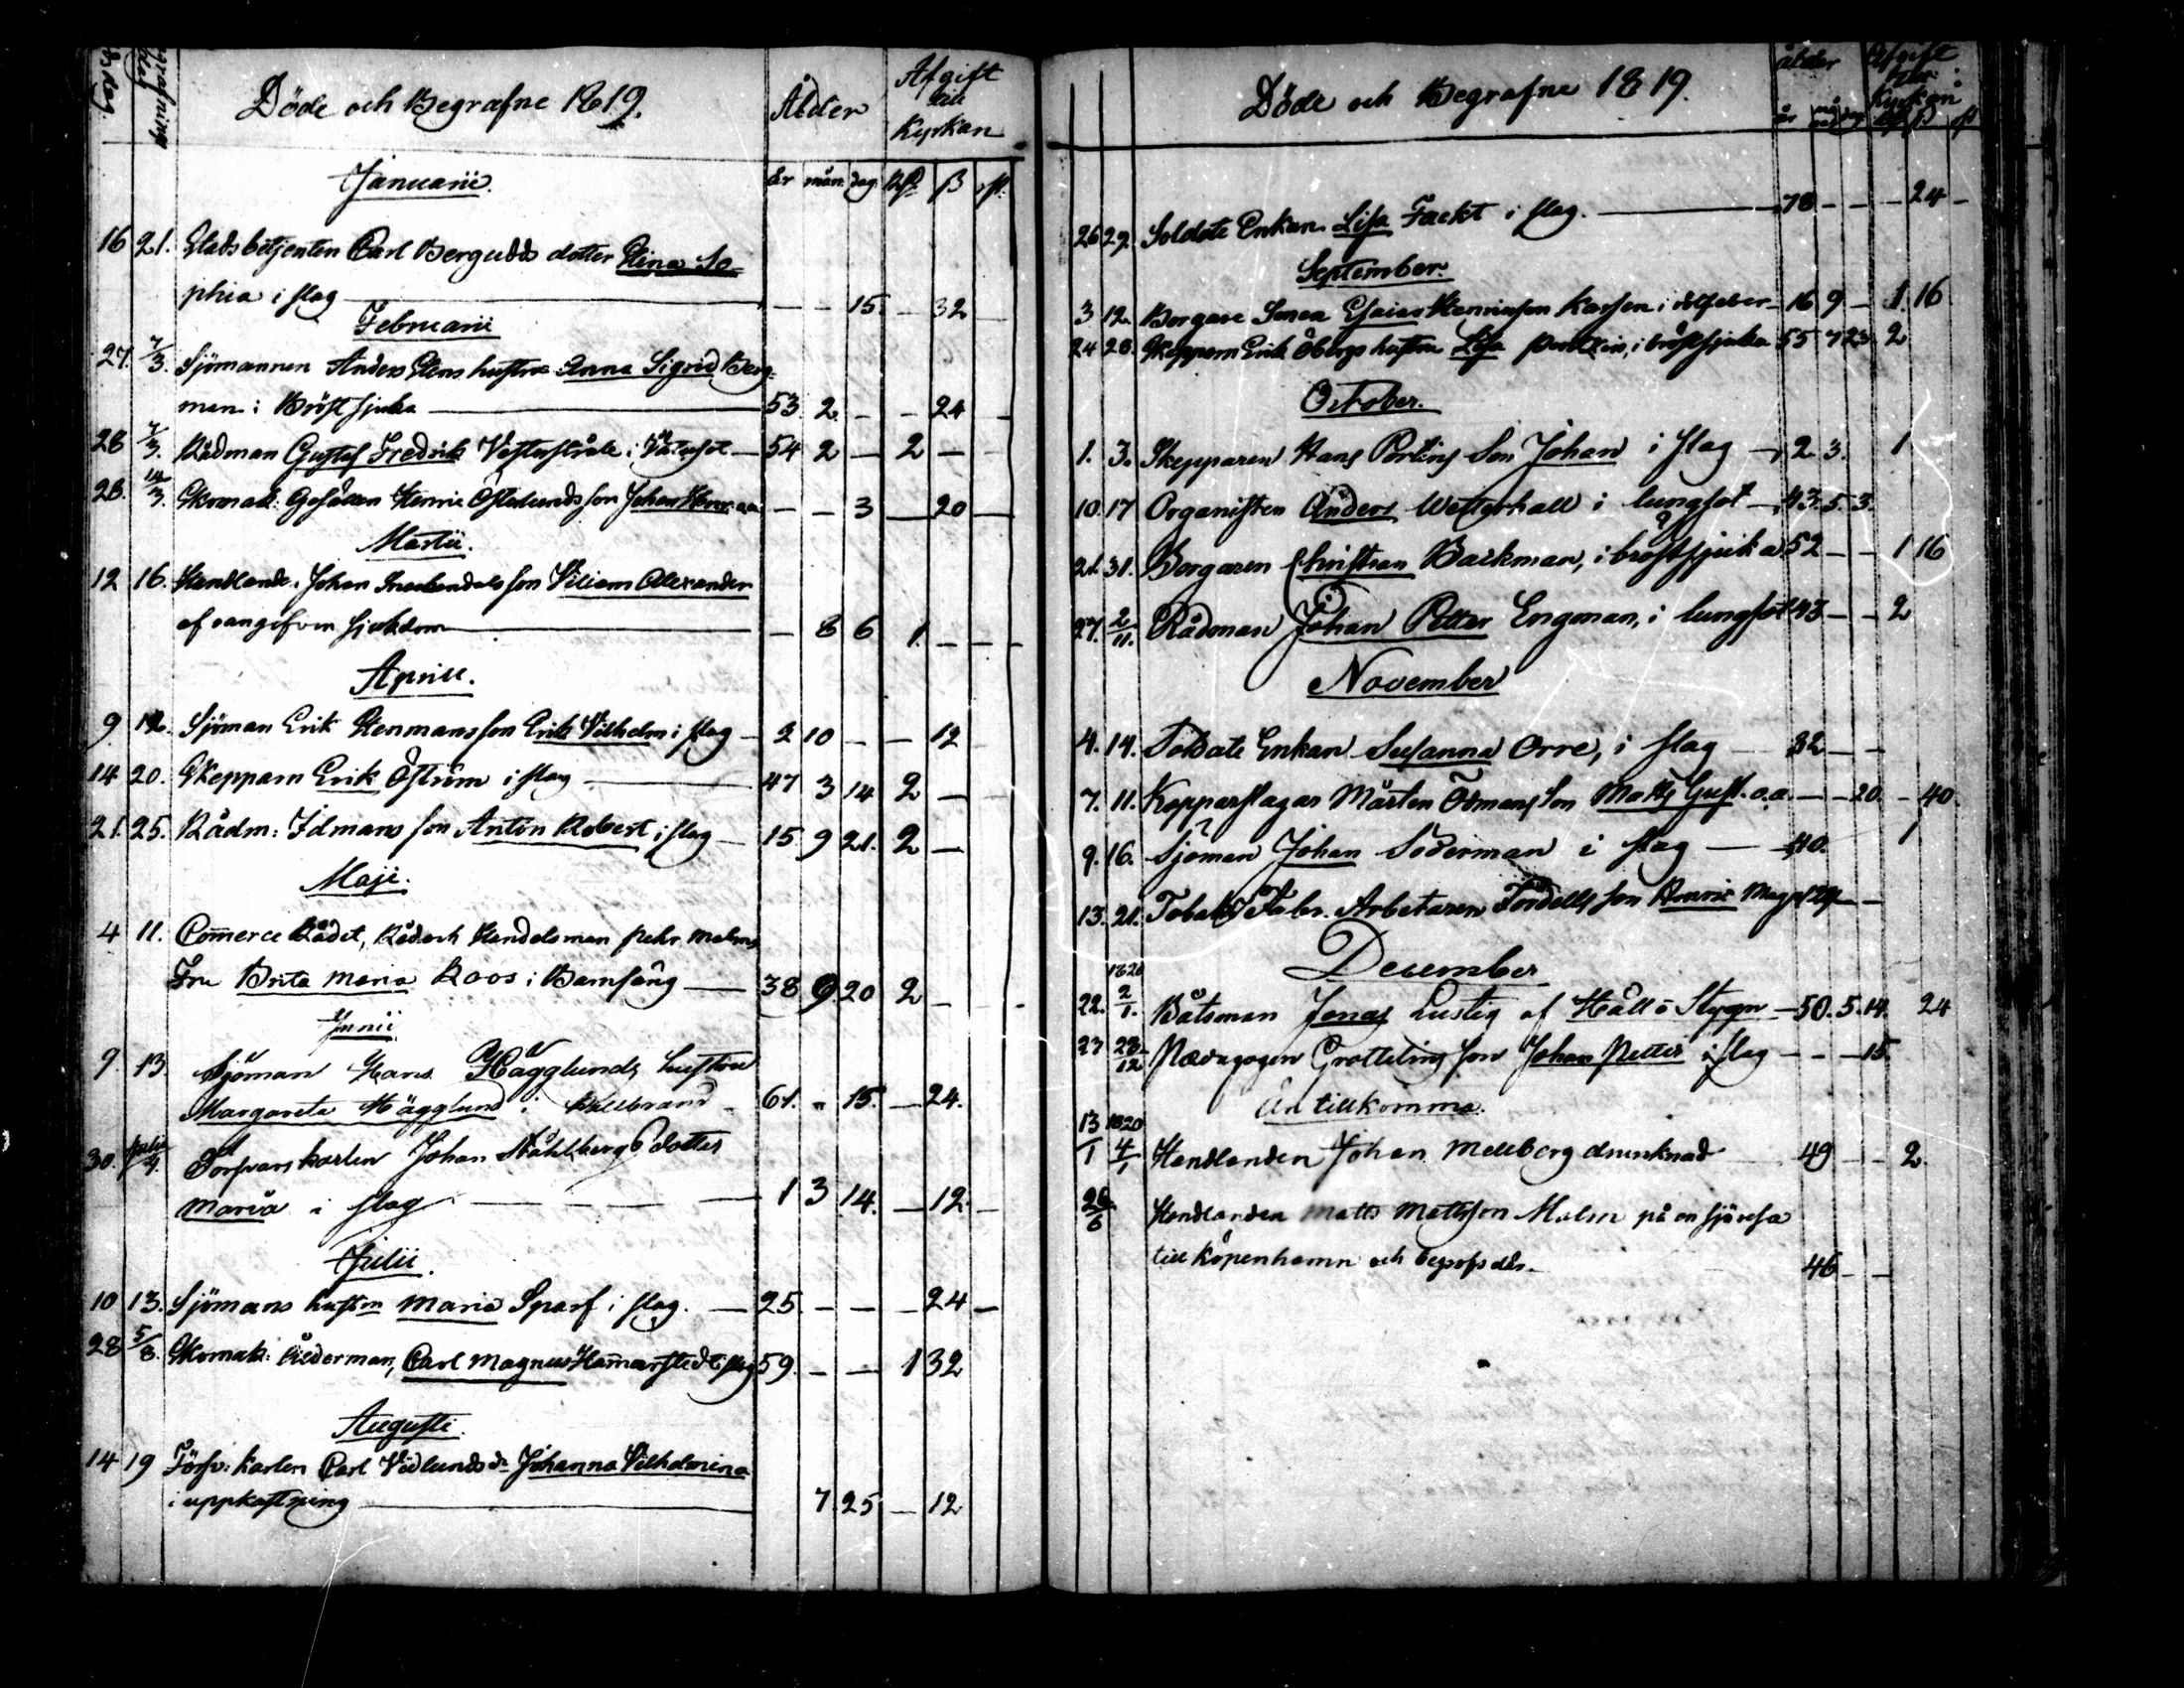 Döde och Begrafne 1819.
Ålder
Afgift till Kyrkan
år mån. dag. Rd. ß rst.
Januarii.
16 21. Stadsbetjenten Carl Bergudds dotter Stina So-
phia i slag — — 15. — 32 —
Februarii
27. 7/3. Sjömannen Anders Stens hustru Anna Sigrid Berg-
man i Bröstsjuka 53 2 — — 24 —
28 7/3. Rådman Gustaf Fredrik Vesterstråle i Vatusot 54 2 — 2 — —
28. 14/3. Skomak: Gesällen Henric Österlunds son Johan Henr. a.a. — — 3 — 20 —
Martii.
12 16. Handlande Johan son Viliam Allexander
af oangifven sjukdom — 8 6 1. — —
Aprill.
9. 12. Sjöman Erik Stenmans son Erik Vilhelm i slag 2 10 — — 12
14 20. Skepparn Erik Öström i slag 47 3 14 2 —
21. 25. Rådm: Idmans son Anton Robert i slag 15 9 21. 2 —
Maji.
4 11. Commerce Rådet, Råd och Handelsman Pehr Malms
Fru Brita Maria Roos i Barnsäng 38 9 20 2 —
Junii
9. 13 Sjöman Hans Hägglunds hustru
Margareta Hägglund i Kallbrand 61. " 15. — 24.
30. Julii 4. Försvarskarlen Johan Ståhlbergs dotter
Maria i slag 1 3 14. — 12. —
Julii.
10 13. Sjömans hustru Maria Sparf i slag. 25 — — — 24 —
28 5/8. Skomak: Ålderman, Carl Magnus Hammarstedt i slag 59. — — 1 32
Augusti.
14 19 Försv: karlen Carl Vidlunds dr Johanna Vilhelmina
i uppkastning 7. 25 — 12
Döde och Begrafne 1819.
ålder
Afgift till Kyrkan
år mån dag
26 29. Soldate Enkan Lisa Fackt i slag. 78 — — — 24 —
September.
3 12. Borgare Sonen Esaias Henrikson Karsen i rötfeber 16 9 — 1. 16
24 28. Skepparn Erik Öbergs hustru Lisa i bröstsjuka 55 7 23 2
October.
1. 3. Skepparen Hans Porlins Son Johan i slag 2. 3. 1
10. 17 Organisten Anders Westerhall i lungsot 43. 5. 3.
21. 31. Borgaren Christian Backman, i bröstsjuka 52 — — 1 16
27. 2/11. Rådman Johan Petter Engman, i lungsot 43 — — 2
November
4. 14. Soldate Enkan Susanna Orre, i slag 82 — —
7. 11. Kopparslagar Mårten Ödmans Son Matts Gust. a.a. — — 20. — 40.
9. 16. Sjöman Johan Söderman i slag 40. 1
13. 21. Tobaks Fabr. Arbetaren Fordells son Henric Magn.
December
1820
22. 2/1. Båtsman Jonas Lustig af Håll o Stygn 50. 5. 14. 24
27 28/12 Pædagogen Grottelins son Johan Petter i slag — — 15.
Än tillkomma.
1820
13/1 4/1 Handlanden Johan Mellberg drunknad 49 — — 2.
26/6 Handlanden Matts Mattsson Malm på en sjöresa
till Köpenhamn och begrofs där. 46 — —